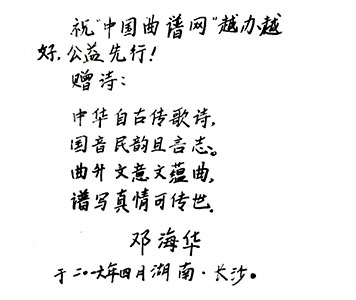 祝“中国曲谱网”越办越
好，公益先行！
赠诗：
中华自古传歌诗，
国音民韵且言志。
曲外文意文蕴曲，
谱写真情可传世。
邓海华
于二〇一六年四月湖南·长沙。